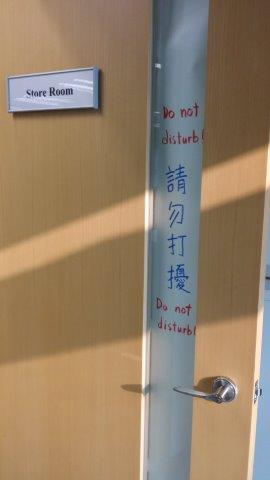 Store Room
Do not
disturb!
請勿打擾
Do not
disturb!